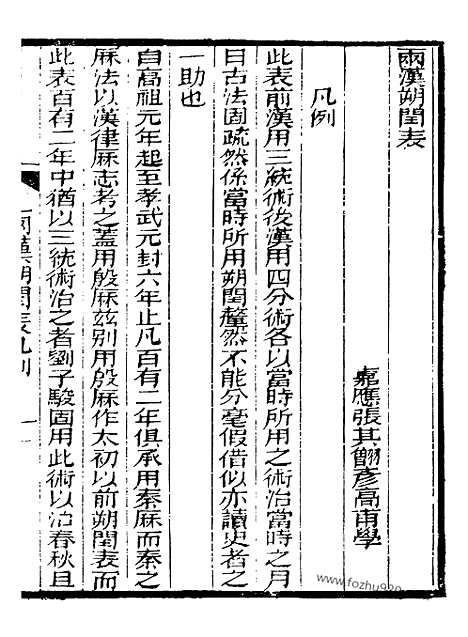 兩漢朔閏表
嘉應張其䎖彥高甫學
凡例
此表前漢用三統術後漢用四分術各以當時所用之術治當時之月
日古法固疏然係當時所用朔閏釐然不能分毫假借似亦讀史者之
一助也
自高祖元年起至孝武元封六年止凡百有二年俱承用秦厤而秦之
厤法以漢律厤志考之蓋用殷厤茲別用殷厤作太初以前朔閏表而
此表百有二年中猶以三統術治之者劉子駿固用此術以治春秋且
兩漢朔閏表凡例
一
www.fozhu920